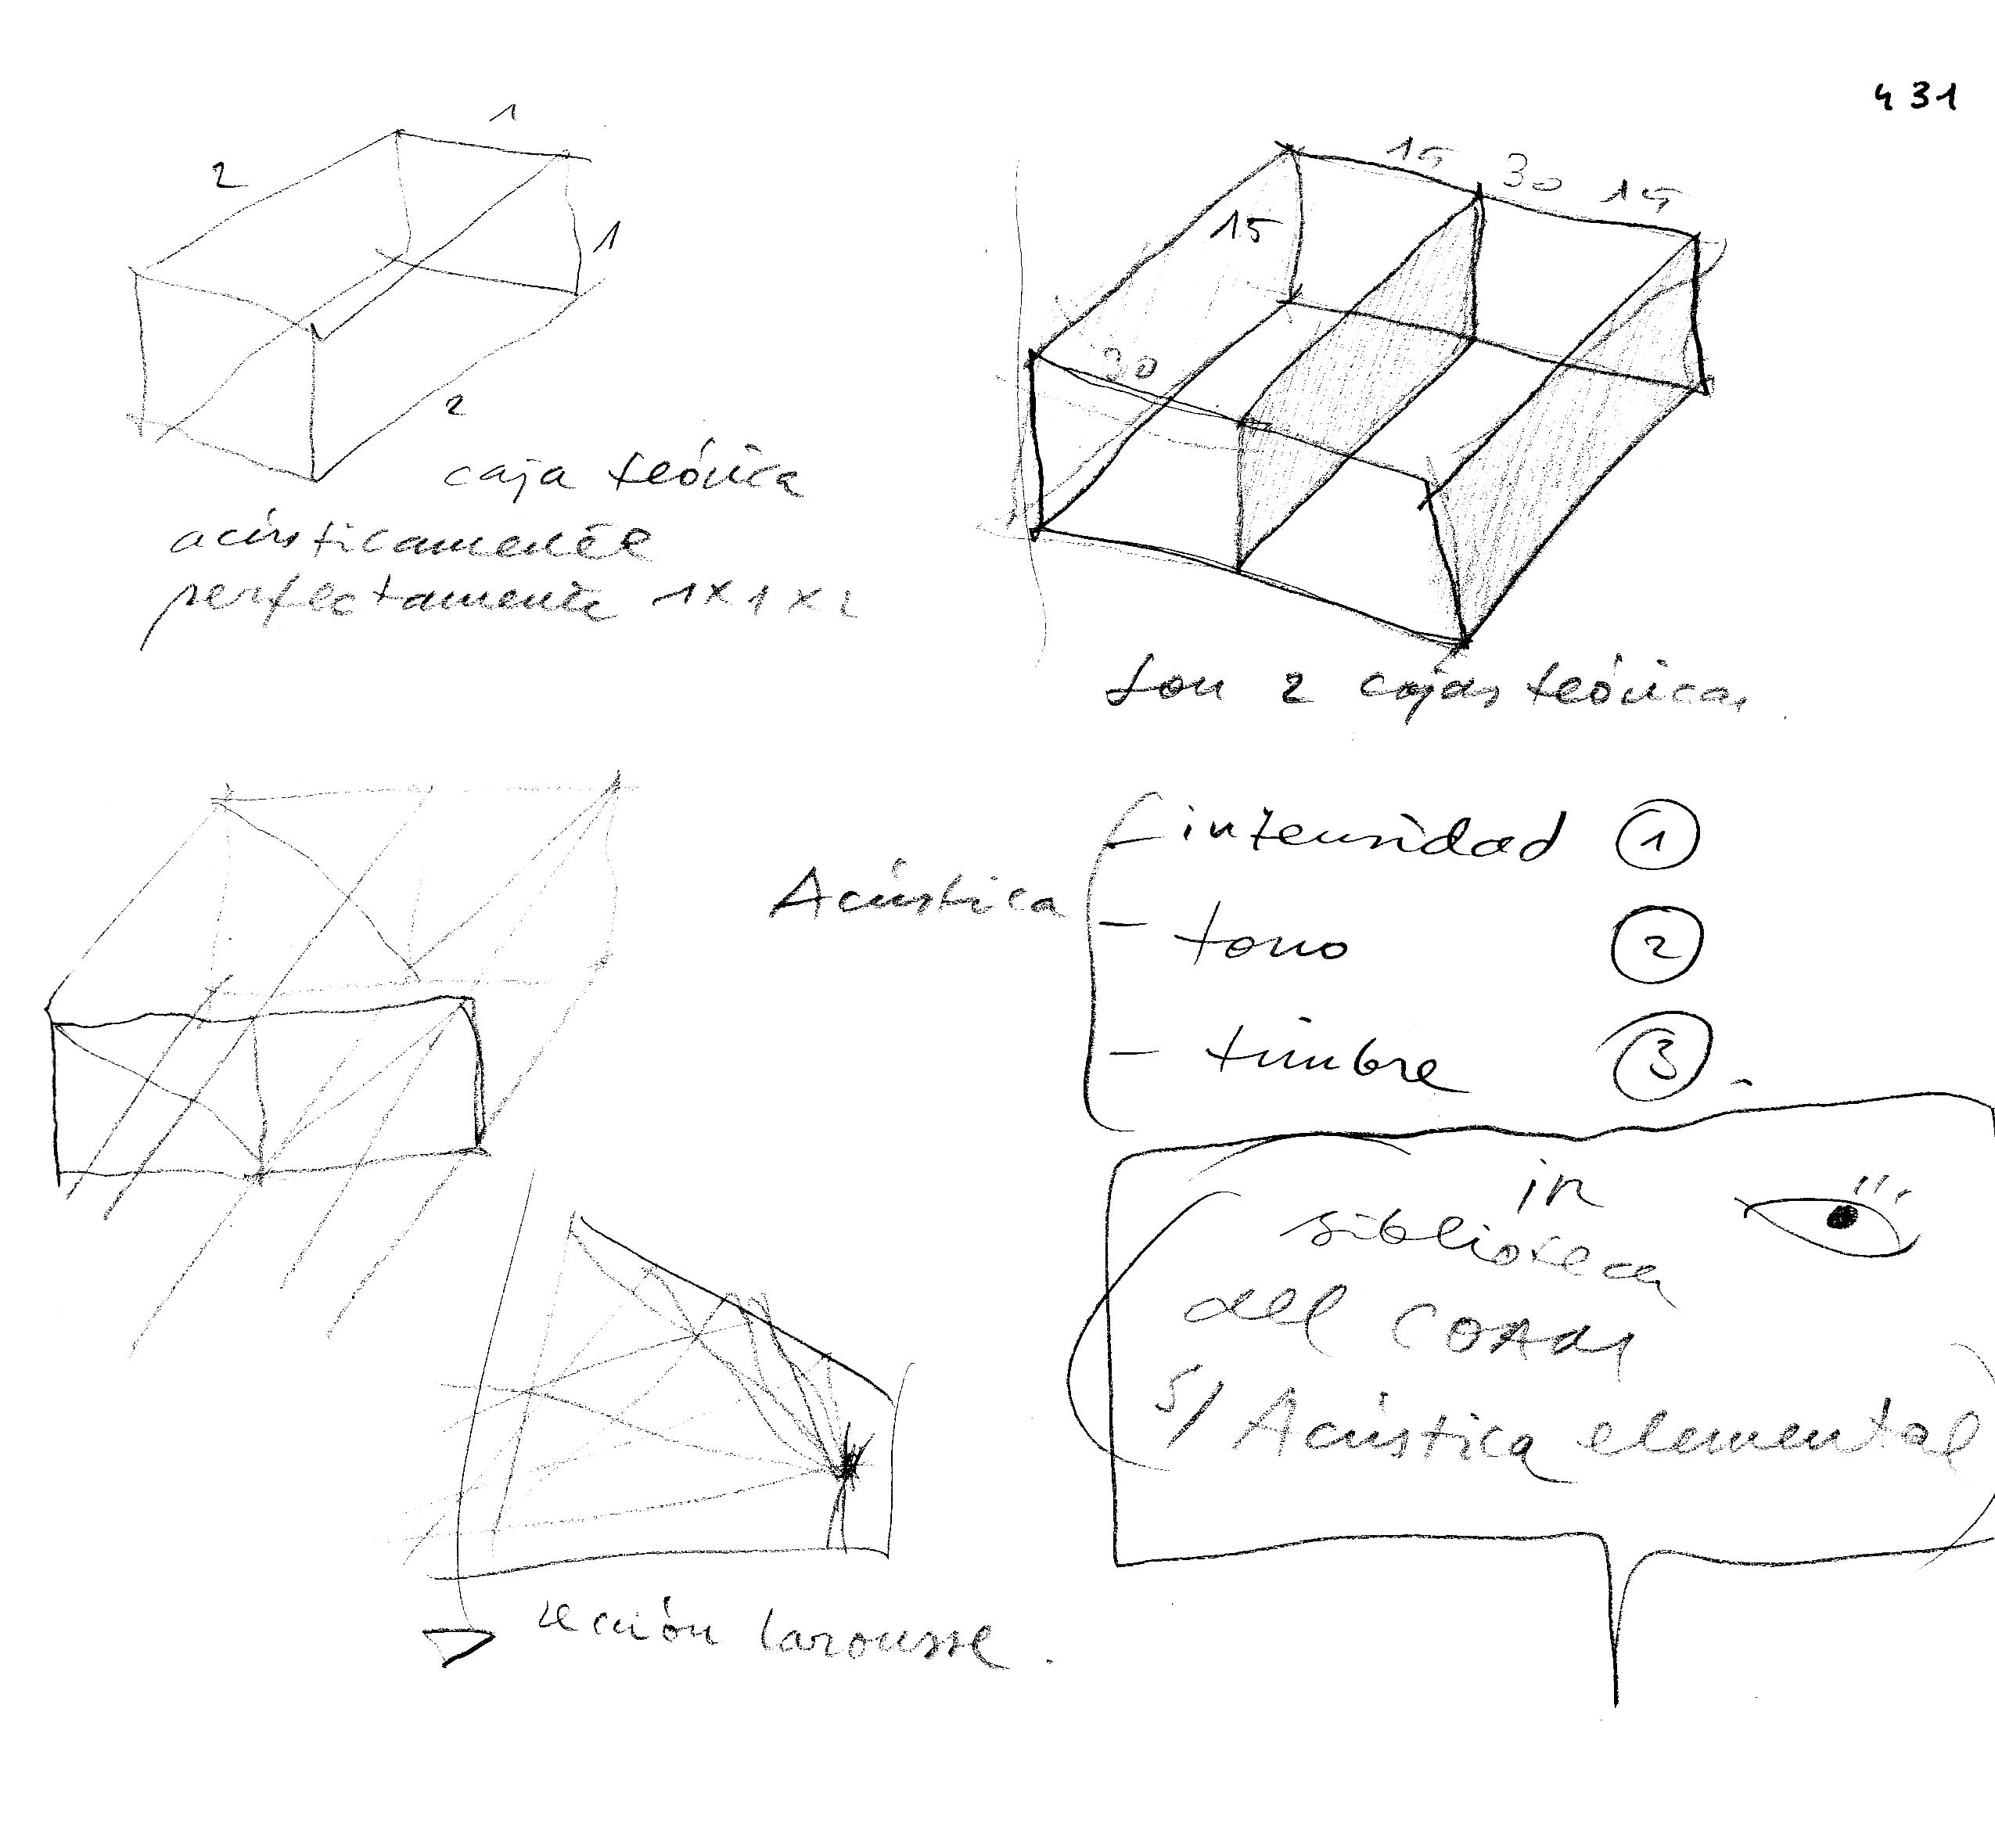 431
1
2
1
2
caja teórica
acústicamente
perfectamente 1x1x2
15 30 15
15
30
son 2 cajas teóricas.
Acústica
- intensidad 1
- tono 2
- timbre 3.
in
biblioteca
del
5/ Acústica elemental
sección larousse.